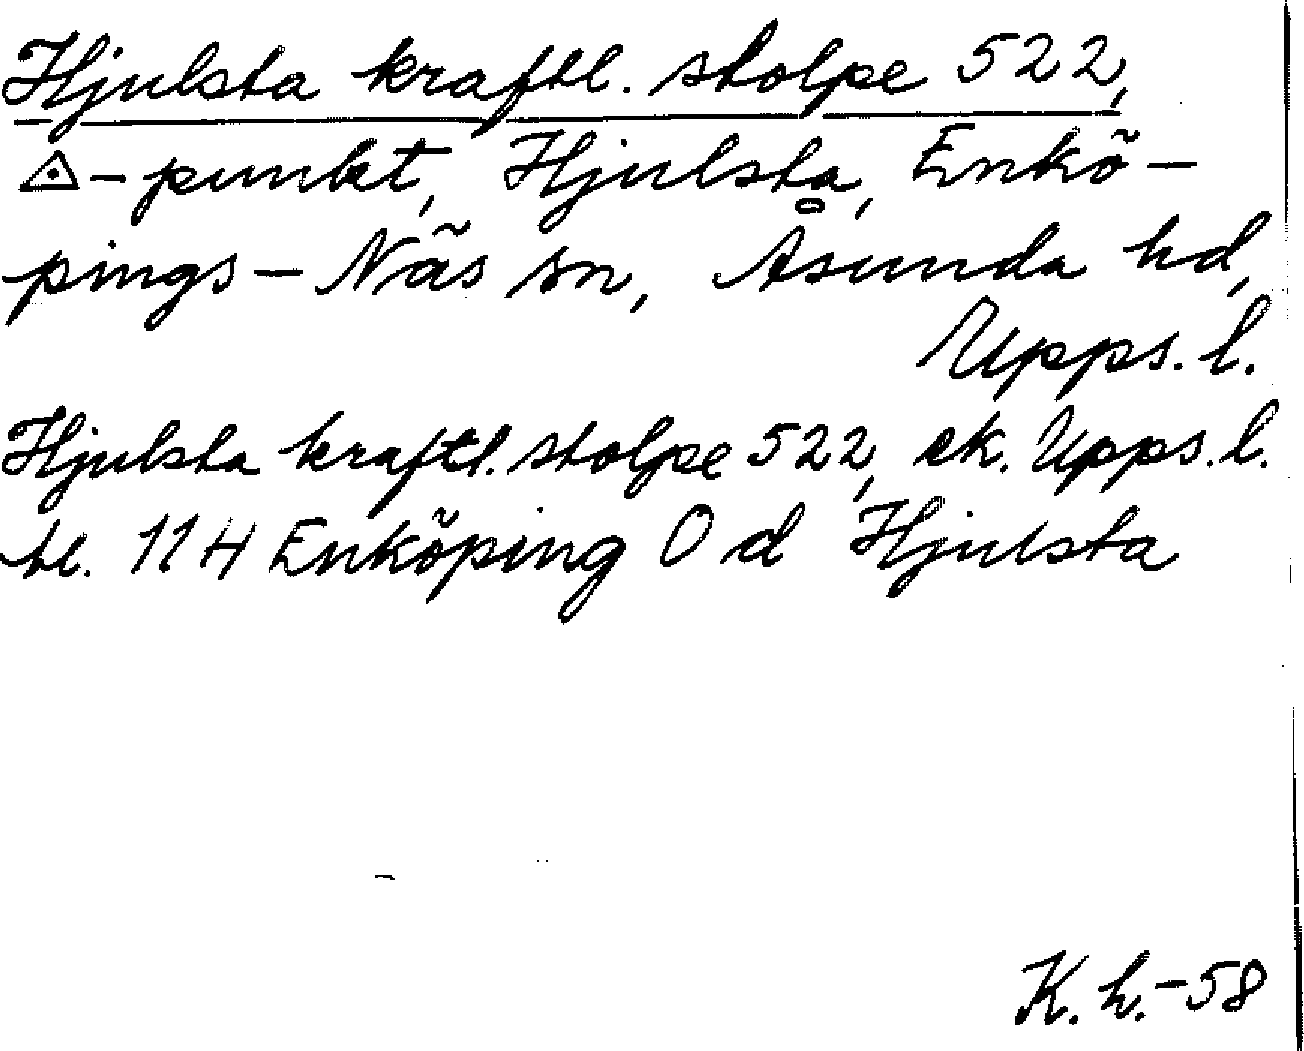 Hjulsta kraftl. stolpe 522,
△-punkt, Hjulsta, Enkö-
pings-Näs sn, Åsunda hd,
Upps. l.
Hjulsta kraftl. stolpe 522, ek. Upps. l.
bl. 11 H Enköping O d Hjulsta
K. h. -58